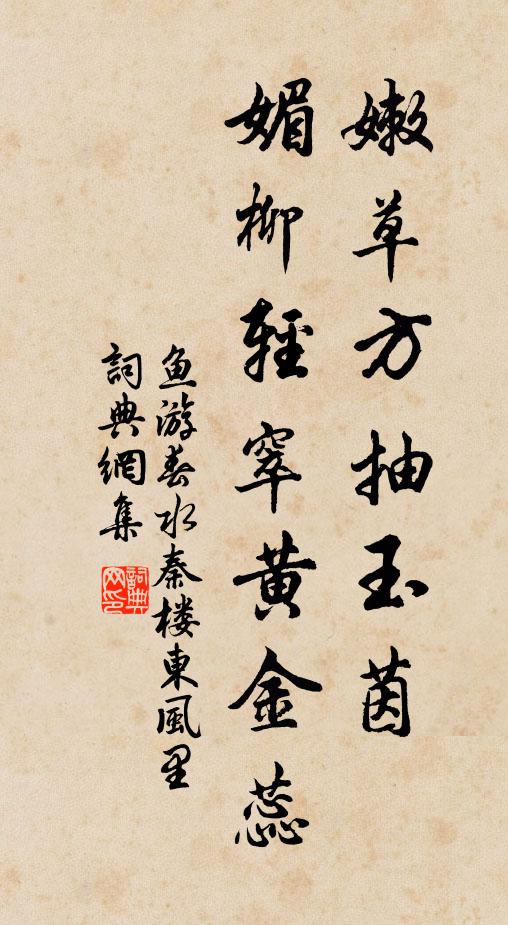 嫩草方抽玉茵
媚柳輕窣黃金蕊
鱼游春水秦楼東風里
詞典網集
詞典網印